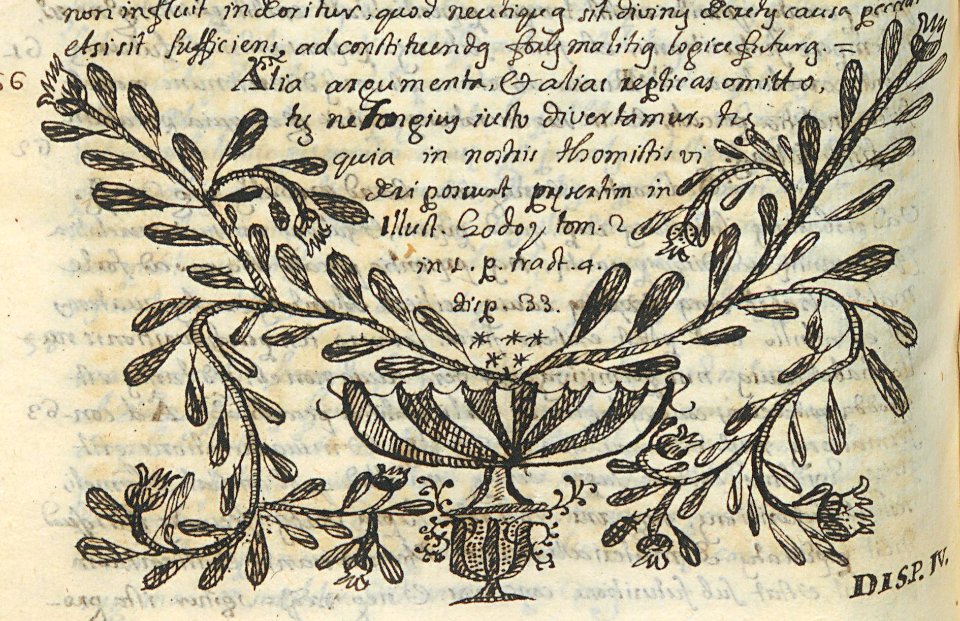 non influit in deoritur, quod neutiqua sit divinu decretu causa peccati
etsi sit sufficiens, ad constituenda malitia logice futura. =
56 Alia argumenta, & alias replicas omitto,
tu ne longius iusto divertamur, tu
quia in nostris thomistis vi
deri possunt presertim in
Illust. Godoy tom. 2
in 1. p. tract. 4.
disp. 33.
DISP. IV.